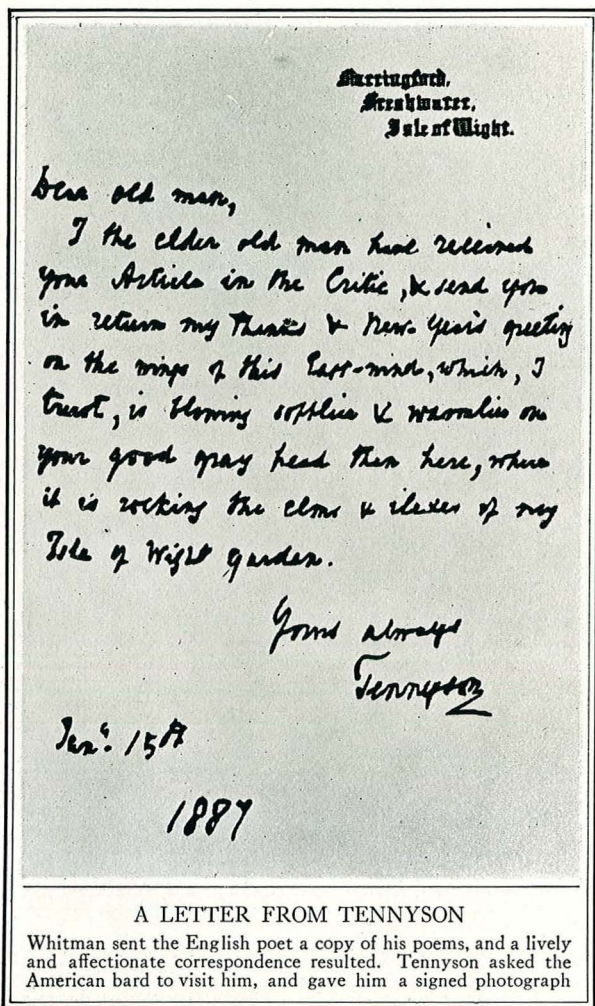 Farringford,
Freshwater,
Isle of Wight.
Dear old man,
I the elder old man have received
your Article in the Critic, & send you
in return my Thanks & New-Year's greeting
on the wings of this East-wind, which, I
trust, is blowing softlier & warmlier on
your good gray head than here, where
it is rocking the elms & ilexes of my
Isle of Wight garden.
Yours always
Tennyson
Jany. 15th
1887
A LETTER FROM TENNYSON
Whitman sent the English poet a copy of his poems, and a lively
and affectionate correspondence resulted. Tennyson asked the
American bard to visit him, and gave him a signed photograph